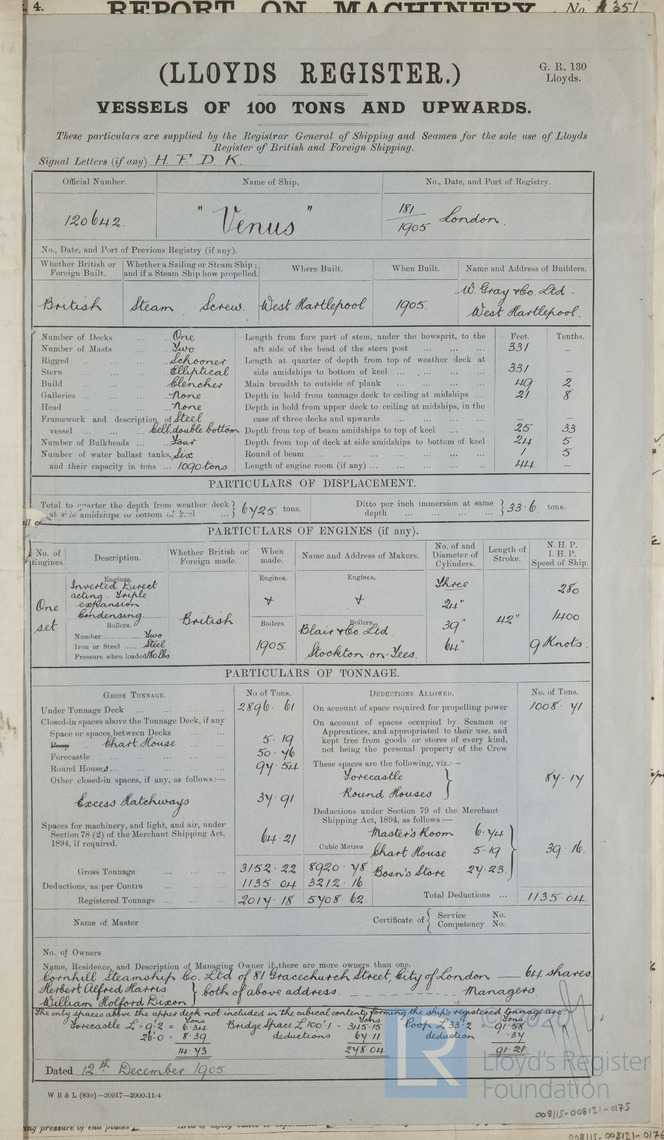 4. REPORT ON MACHINERY No. 351
(LLOYDS REGISTER.)
G. R. 130
Lloyds.
VESSELS OF 100 TONS AND UPWARDS.
These particulars are supplied by the Registrar General of Shipping and Seamen for the sole use of Lloyds
Register of British and Foreign Shipping.
Signal Letters (if any) H. F. D. K.
Official Number. Name of Ship. No., Date, and Port of Registry.
120642 "Venus" 181/1905 London.
No., Date, and Port of Previous Registry (if any).
Whether British or Foreign Built. Whether a Sailing or Steam Ship; and if a Steam Ship how propelled. Where Built. When Built. Name and Address of Builders.
British Steam Screw. West Hartlepool 1905. W. Gray & Co. Ltd. West Hartlepool.
Feet. Tenths.
Number of Decks ... One
Number of Masts ... Two
Rigged ... Schooner
Stern ... Elliptical
Build ... Clencher
Galleries ... None
Head ... None
Framework and description of vessel ... Steel
Cell. double bottom
Number of Bulkheads ... Four
Number of water ballast tanks, Six
and their capacity in tons ... 1090 tons
Length from fore part of stem, under the bowsprit, to the aft side of the head of the stern post 331 –
Length at quarter of depth from top of weather deck at side amidships to bottom of keel 331 –
Main breadth to outside of plank 49 2
Depth in hold from tonnage deck to ceiling at midships 21 8
Depth in hold from upper deck to ceiling at midships, in the case of three decks and upwards – –
Depth from top of beam amidships to top of keel 25 33
Depth from top of deck at side amidships to bottom of keel 24 5
Round of beam 1 5
Length of engine room (if any) 44 –
PARTICULARS OF DISPLACEMENT.
Total to quarter the depth from weather deck at side amidships to bottom of keel } 6725 tons. Ditto per inch immersion at same depth } 33.6 tons.
PARTICULARS OF ENGINES (if any).
No. of Engines. Description. Whether British or Foreign made. When made. Name and Address of Makers. No. of and Diameter of Cylinders. Length of Stroke. N. H. P. I. H. P. Speed of Ship.
One set
Engines.
Inverted Direct
acting Triple
expansion
Condensing
Boilers.
Number Two
Iron or Steel Steel
Pressure when loaded 180 lbs
British
Engines.
Boilers.
1905
Engines.
Boilers.
Blair & Co. Ltd
Stockton-on-Tees.
Three
24"
39"
64"
42"
280
1400
9 Knots.
PARTICULARS OF TONNAGE.
GROSS TONNAGE. No of Tons. DEDUCTIONS ALLOWED. No. of Tons.
Under Tonnage Deck 2896.61
Closed-in spaces above the Tonnage Deck, if any
Space or spaces between Decks
Poop Chart House 5.19
Forecastle 50.76
Round Houses 97.54
Other closed-in spaces, if any, as follows:—
Excess Hatchways 37.91
Spaces for machinery, and light, and air, under Section 78 (2) of the Merchant Shipping Act, 1894, if required. 64.21
Cubic Metres
Gross Tonnage 3152.22 8920.78
Deductions, as per Contra 1135.04 3212.16
Registered Tonnage 2017.18 5708.62
On account of space required for propelling power 1008.71
On account of spaces occupied by Seamen or Apprentices, and appropriated to their use, and kept free from goods or stores of every kind, not being the personal property of the Crew
These spaces are the following, viz.: –
Forecastle
Round Houses } 87.17
Deductions under Section 79 of the Merchant Shipping Act, 1894, as follows:—
Master's Room 6.74
Chart House 5.19
Bosn's Store 27.23 } 39.16
Total Deductions 1135.04
Name of Master Certificate of { Service No. Competency No.
No. of Owners
Name, Residence, and Description of Managing Owner if there are more owners than one.
Cornhill Steamship Co. Ltd of 81 Gracechurch Street, City of London 64 shares
Herbert Alfred Harris
William Holford Dixon } both of above address Managers
The only spaces above the upper deck not included in the cubical contents forming the ship's registered tonnage are
Tons Tons Tons
Forecastle L = 9.2 = 6.34 Bridge Space L 100.1 = 345.15 Poop L 33.2 = 91.58
26.0 = 8.39 deductions 67.11 deduction .37
14.73 278.04 91.21
Dated 12th December 1905.
W B & L (83o)—20917—2000-11-4
© 2020
LR
Lloyd's Register
Foundation
008115-008121-0175
008115-008121-0176